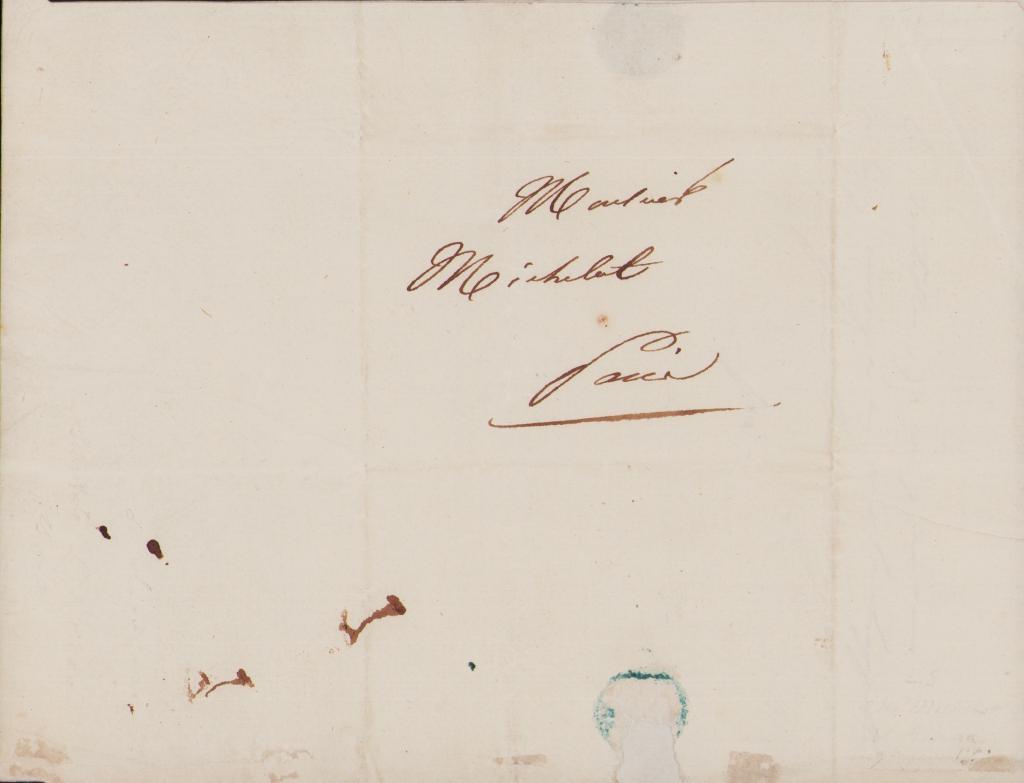 Monsieur
Michelet
Paris